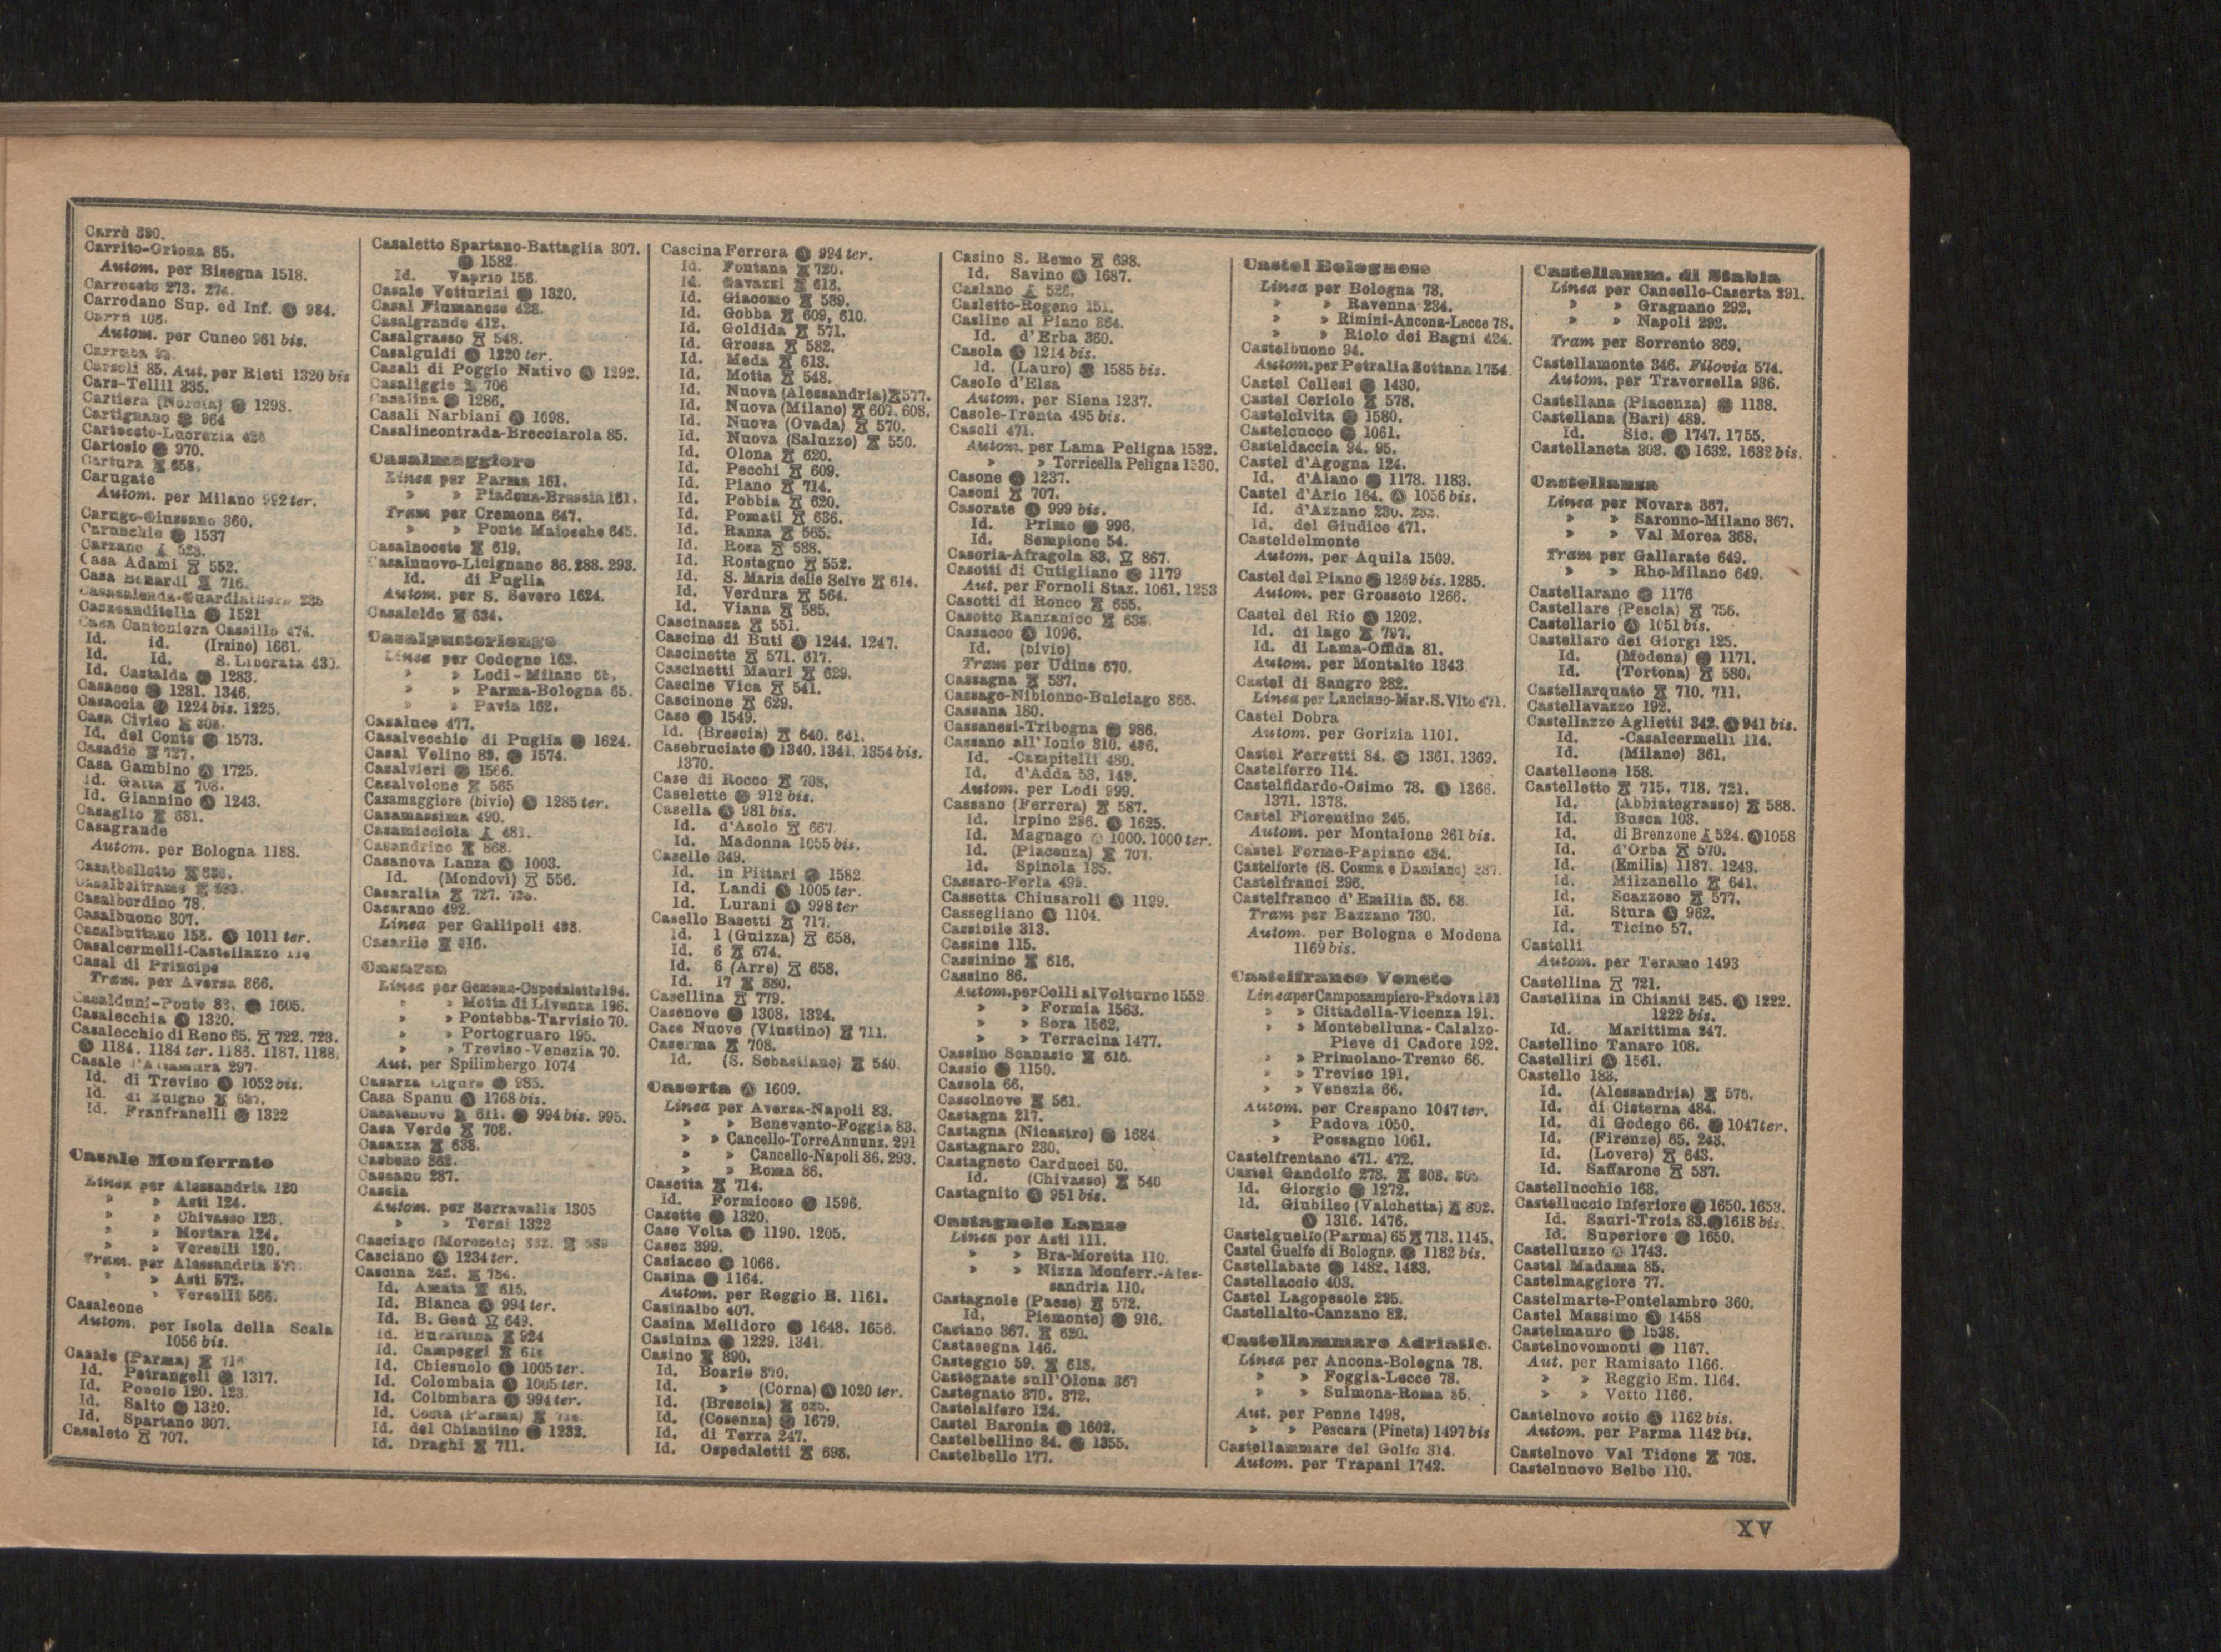 Carrè 390.
Carrito-Ortona 85.
Autom. per Bisegna 1518.
Carroceto 273. 274.
Carrodano Sup. ed Inf. Ⓐ 984.
Carrù 108.
Autom. per Cuneo 961 bis.
Carsoli 85. Aut. per Rieti 1320 bis
Cars-Tellil 335.
Cartiera (Norcia) Ⓐ 1298.
Cartignano Ⓐ 964
Cartoceto-Lucrezia 428
Cartosio Ⓐ 970.
Cartura 658.
Carugate
Autom. per Milano 992 ter.
Carugo-Giussano 360.
Carunchio Ⓐ 1537
Carzano 523.
Casa Adami 552.
Casa Bernardi 716.
Casacalenda-Guardialfiera 235
Casacanditella Ⓐ 1521
Casa Cantoniera Cassillo 474.
Id. id. (Irsino) 1661.
Id. Id. S. Liberata
Id. Castalda Ⓐ 1283.
Casacce Ⓐ 1281. 1346.
Casaccia Ⓐ 1224 bis. 1225.
Casa Civiso
Id. del Conte Ⓐ 1573.
Casadio 727.
Casa Gambino Ⓐ 1725.
Id. Gatta 708.
Id. Giannino Ⓐ 1243.
Casaglio 631.
Casagrande
Autom. per Bologna 1188.
Casalbellotto
Casalbeltrame
Casalbordino 78.
Casalbuono 307.
Casalbuttano 158. Ⓐ 1011 ter.
Casalcermelli-Castellazzo 114
Casal di Principe
Tram. per Aversa 866.
Casalduni-Ponte 83. Ⓐ 1605.
Casalecchia Ⓐ 1320.
Casalecchio di Reno 65. 722. 723.
Ⓐ 1184. 1184 ter. 1186. 1187. 1188.
Casale 297
Id. di Treviso Ⓐ 1052 bis.
Id. di Zuigno
Id. Franfranelli Ⓐ 1322
Casale Monferrato
Linea per Alessandria 120
» » Asti 124.
» » Chivasso 123.
» » Mortara 124.
» » Vercelli 120.
Tram. per Alessandria
» » Asti 572.
» Vercelli 566.
Casaleone
Autom. per Isola della Scala
1056 bis.
Casale (Parma)
Id. Petrangeli Ⓐ 1317.
Id. Popolo 120. 123.
Id. Salto Ⓐ 1320.
Id. Spartano 307.
Casaleto 707.
Casaletto Spartano-Battaglia 307.
Ⓐ 1582.
Id. Vaprio 158.
Casale Vetturini Ⓐ 1320.
Casal Fiumanese 428.
Casalgrande 412.
Casalgrasso 548.
Casalguidi Ⓐ 1220 ter.
Casali di Poggio Nativo Ⓐ 1292.
Casaliggio 706
Casalina Ⓐ 1286.
Casali Narbiani Ⓐ 1698.
Casalincontrada-Brecciarola 85.
Casalmaggiore
Linea per Parma 161.
» » Piadena-Brescia 161.
Tram per Cremona 647.
» » Ponte Maiocche 645.
Casalnoceto 619.
Casalnuovo-Licignano 86. 288. 293.
Id. di Puglia
Autom. per S. Severo 1624.
Casaloldo 634.
Casalpusterlengo
Linea per Codogno 162.
» » Lodi-Milano 65.
» » Parma-Bologna 65.
» » Pavia 162.
Casaluce 477.
Casalvecchio di Puglia Ⓐ 1624.
Casal Velino 89. Ⓐ 1574.
Casalvieri Ⓐ 1566.
Casalvolone 565
Casamaggiore (bivio) Ⓐ 1285 ter.
Casamassima 490.
Casamicciola 481.
Casandrino 868.
Casanova Lanza Ⓐ 1003.
Id. (Mondovì) 556.
Casaralta 727.
Casarano 492.
Linea per Gallipoli 493.
Casarile 616.
Casarsa
Linea per Gemona-Ospedaletto 194.
» » Motta di Livenza 196.
» » Pontebba-Tarvisio 70.
» » Portogruaro 195.
» » Treviso-Venezia 70.
Aut. per Spilimbergo 1074
Casarza Ligure Ⓐ 985.
Casa Spanu Ⓐ 1768 bis.
Casatenovo 611. Ⓐ 994 bis. 995.
Casa Verde 708.
Casazza 638.
Casbeno 362.
Cascano 287.
Cascia
Autom. per Serravalle 1305
» » Terni 1322
Casciago (Morosolo)
Casciano Ⓐ 1234 ter.
Cascina 242. 754.
Id. Amata 615.
Id. Bianca Ⓐ 994 ter.
Id. B. Gesù 649.
Id. Burattina 924
Id. Campeggi
Id. Chiesuolo Ⓐ 1005 ter.
Id. Colombaia Ⓐ 1005 ter.
Id. Colombara Ⓐ 994 ter.
Id. Costa (Parma)
Id. del Chiantino Ⓐ 1232.
Id. Draghi 711.
Cascina Ferrera Ⓐ 994 ter.
Id. Fontana 720.
Id. Gavazzi 618.
Id. Giacomo 589.
Id. Gobba 609, 610.
Id. Goldida 571.
Id. Grossa 582.
Id. Meda 613.
Id. Motta 548.
Id. Nuova (Alessandria) 577.
Id. Nuova (Milano) 607. 608.
Id. Nuova (Ovada) 570.
Id. Nuova (Saluzzo) 550.
Id. Olona 620.
Id. Pecchi 609.
Id. Piano 714.
Id. Pobbia 620.
Id. Pomati 636.
Id. Ranza 565.
Id. Rosa 588.
Id. Rostagno 552.
Id. S. Maria delle Selve 614.
Id. Verdura 564.
Id. Viana 585.
Cascinazza 551.
Cascine di Buti Ⓐ 1244. 1247.
Cascinette 571. 617.
Cascinetti Mauri 629.
Cascine Vica 541.
Cascinone 629.
Case Ⓐ 1549.
Id. (Brescia) 640. 641.
Casebruciate Ⓐ 1340. 1341. 1354 bis.
1370.
Case di Rocco 708.
Caselette Ⓐ 912 bis.
Casella Ⓐ 981 bis.
Id. d'Asolo 667.
Id. Madonna 1055 bis.
Caselle 349.
Id. in Pittari Ⓐ 1582.
Id. Landi Ⓐ 1005 ter.
Id. Lurani Ⓐ 998 ter
Casello Basetti 717.
Id. 1 (Guizza) 658.
Id. 6 674.
Id. 6 (Arre) 658.
Id. 17 880.
Casellina 779.
Casenove Ⓐ 1308. 1324.
Case Nuove (Viustino) 711.
Caserma 708.
Id. (S. Sebastiano) 540.
Caserta Ⓐ 1609.
Linea per Aversa-Napoli 83.
» » Benevento-Foggia 83.
» » Cancello-Torre Annunz. 291
» » Cancello-Napoli 86. 293.
» » Roma 86.
Casetta 714.
Id. Formicoso Ⓐ 1596.
Casette Ⓐ 1320.
Case Volta Ⓐ 1190. 1205.
Casez 399.
Casiacco Ⓐ 1066.
Casina Ⓐ 1164.
Autom. per Reggio E. 1161.
Casinalbo 407.
Casina Melidoro Ⓐ 1648. 1656.
Casinina Ⓐ 1229. 1341.
Casino 890.
Id. Boario 370.
Id. » (Corna) Ⓐ 1020 ter.
Id. (Brescia)
Id. (Cosenza) Ⓐ 1679.
Id. di Terra 247.
Id. Ospedaletti 698.
Casino S. Remo 698.
Id. Savino Ⓐ 1687.
Caslano 526.
Casletto-Rogeno 151.
Caslino al Piano 364.
Id. d'Erba 360.
Casola Ⓐ 1214 bis.
Id. (Lauro) Ⓐ 1585 bis.
Casole d'Elsa
Autom. per Siena 1237.
Casole-Trenta 495 bis.
Casoli 471.
Autom. per Lama Peligna 1532.
» » Torricella Peligna 1530.
Casone Ⓐ 1237.
Casoni 707.
Casorate Ⓐ 999 bis.
Id. Primo Ⓐ 996.
Id. Sempione 54.
Casoria-Afragola 83. 867.
Casotti di Cutigliano Ⓐ 1179
Aut. per Fornoli Staz. 1061. 1253
Casotti di Ronco 655.
Casotto Ranzanico 638.
Cassacco Ⓐ 1096.
Id. (bivio)
Tram per Udine 670.
Cassagna 537.
Cassago-Nibionno-Bulciago 366.
Cassana 180.
Cassanesi-Tribogna Ⓐ 986.
Cassano all'Ionio 310. 496.
Id. -Campitelli 480.
Id. d'Adda 53. 149.
Autom. per Lodi 999.
Cassano (Ferrera) 587.
Id. Irpino 296. Ⓐ 1625.
Id. Magnago Ⓐ 1000. 1000 ter.
Id. (Piacenza) 707.
Id. Spinola 135.
Cassaro-Ferla 499.
Cassetta Chiusaroli Ⓐ 1129.
Cassegliano Ⓐ 1104.
Cassibile 313.
Cassine 115.
Cassinino 616.
Cassino 86.
Autom. per Colli al Volturno 1552.
» » Formia 1563.
» » Sora 1562.
» » Terracina 1477.
Cassino Scanasio 616.
Cassio Ⓐ 1150.
Cassola 66.
Cassolnovo 561.
Castagna 217.
Castagna (Nicastro) Ⓐ 1684.
Castagnaro 230.
Castagneto Carducci 50.
Id. (Chivasso) 540
Castagnito Ⓐ 951 bis.
Castagnole Lanze
Linea per Asti 111.
» » Bra-Moretta 110.
» » Nizza Monferr.-Ales-
sandria 110.
Castagnole (Paese) 572.
Id. Piemonte) Ⓐ 916.
Castano 367. 620.
Castasegna 146.
Casteggio 59. 618.
Castegnate sull'Olona 367
Castegnato 370. 372.
Castelalfero 124.
Castel Baronia Ⓐ 1602.
Castelbellino 84. Ⓐ 1355.
Castelbello 177.
Castel Bolognese
Linea per Bologna 78.
» » Ravenna 234.
» » Rimini-Ancona-Lecce 78.
» » Riolo dei Bagni 424.
Castelbuono 94.
Autom. per Petralia Sottana 1754.
Castel Cellesi Ⓐ 1430.
Castel Ceriolo 578.
Castelcivita Ⓐ 1580.
Castelcucco Ⓐ 1061.
Casteldaccia 94. 95.
Castel d'Agogna 124.
Id. d'Aiano Ⓐ 1178. 1183.
Castel d'Ario 164. Ⓐ 1056 bis.
Id. d'Azzano 230. 232.
Id. del Giudice 471.
Casteldelmonte
Autom. per Aquila 1509.
Castel del Piano Ⓐ 1269 bis. 1285.
Autom. per Grosseto 1266.
Castel del Rio Ⓐ 1202.
Id. di lago 797.
Id. di Lama-Offida 81.
Autom. per Montalto 1343.
Castel di Sangro 282.
Linea per Lanciano-Mar. S. Vito 471.
Castel Dobra
Autom. per Gorizia 1101.
Castel Ferretti 84. Ⓐ 1361. 1369.
Castelferro 114.
Castelfidardo-Osimo 78. Ⓐ 1366.
1371. 1378.
Castel Fiorentino 245.
Autom. per Montaione 261 bis.
Castel Forme-Papiano 434.
Castelforte (S. Cosma e Damiano) 287.
Castelfranci 296.
Castelfranco d'Emilia 65. 68.
Tram per Bazzano 730.
Autom. per Bologna e Modena
1169 bis.
Castelfranco Veneto
Linea per Camposampiero-Padova 192
» » Cittadella-Vicenza 191.
» » Montebelluna-Calalzo-
Pieve di Cadore 192.
» » Primolano-Trento 66.
» » Treviso 191.
» » Venezia 66.
Autom. per Crespano 1047 ter.
» Padova 1050.
» Possagno 1061.
Castelfrentano 471. 472.
Castel Gandolfo 278. 803.
Id. Giorgio Ⓐ 1272.
Id. Giubileo (Valchetta) 802.
Ⓐ 1316. 1476.
Castelguelfo (Parma) 65 713. 1145.
Castel Guelfo di Bologna. Ⓐ 1182 bis.
Castellabate Ⓐ 1482. 1483.
Castellaccio 403.
Castel Lagopesole 295.
Castellalto-Canzano 82.
Castellammare Adriatic.
Linea per Ancona-Bologna 78.
» » Foggia-Lecce 78.
» » Sulmona-Roma 85.
Aut. per Penne 1498.
» » Pescara (Pineta) 1497 bis
Castellammare del Golfo 314.
Autom. per Trapani 1742.
Castellamm. di Stabia
Linea per Cancello-Caserta 291.
» » Gragnano 292.
» » Napoli 292.
Tram per Sorrento 869.
Castellamonte 346. Filovia 574.
Autom. per Traversella 936.
Castellana (Piacenza) Ⓐ 1138.
Castellana (Bari) 489.
Id. Sic. Ⓐ 1747. 1755.
Castellaneta 303. Ⓐ 1632. 1632 bis.
Castellanza
Linea per Novara 367.
» » Saronno-Milano 367.
» » Val Morea 368.
Tram per Gallarate 649.
» » Rho-Milano 649.
Castellarano Ⓐ 1176
Castellare (Pescia) 756.
Castellario Ⓐ 1051 bis.
Castellaro dei Giorgi 125.
Id. (Modena) Ⓐ 1171.
Id. (Tortona) 580.
Castellarquato 710. 711.
Castellavazzo 192.
Castellazzo Aglietti 342. Ⓐ 941 bis.
Id. -Casalcermelli 114.
Id. (Milano) 361.
Castelleone 158.
Castelletto 715. 718. 721.
Id. (Abbiategrasso) 588.
Id. Busca 103.
Id. di Brenzone 524. Ⓐ 1058
Id. d'Orba 570.
Id. (Emilia) 1187. 1243.
Id. Milzanello 641.
Id. Scazzoso 577.
Id. Stura Ⓐ 962.
Id. Ticino 57.
Castelli
Autom. per Teramo 1493
Castellina 721.
Castellina in Chianti 245. Ⓐ 1222.
1222 bis.
Id. Marittima 247.
Castellino Tanaro 108.
Castelliri Ⓐ 1561.
Castello 183.
Id. (Alessandria) 576.
Id. di Cisterna 484.
Id. di Godego 66. Ⓐ 1047 ter.
Id. (Firenze) 65. 243.
Id. (Lovere) 643.
Id. Saffarone 537.
Castellucchio 163.
Castelluccio Inferiore Ⓐ 1650. 1653.
Id. Sauri-Troia 83. Ⓐ 1618 bis.
Id. Superiore Ⓐ 1650.
Castelluzzo Ⓐ 1743.
Castel Madama 85.
Castelmaggiore 77.
Castelmarte-Pontelambro 360.
Castel Massimo Ⓐ 1458
Castelmauro Ⓐ 1538.
Castelnovomonti Ⓐ 1167.
Aut. per Ramisato 1166.
» » Reggio Em. 1164.
» » Vetto 1166.
Castelnovo sotto Ⓐ 1162 bis.
Autom. per Parma 1142 bis.
Castelnovo Val Tidone 703.
Castelnuovo Belbo 110.
XV